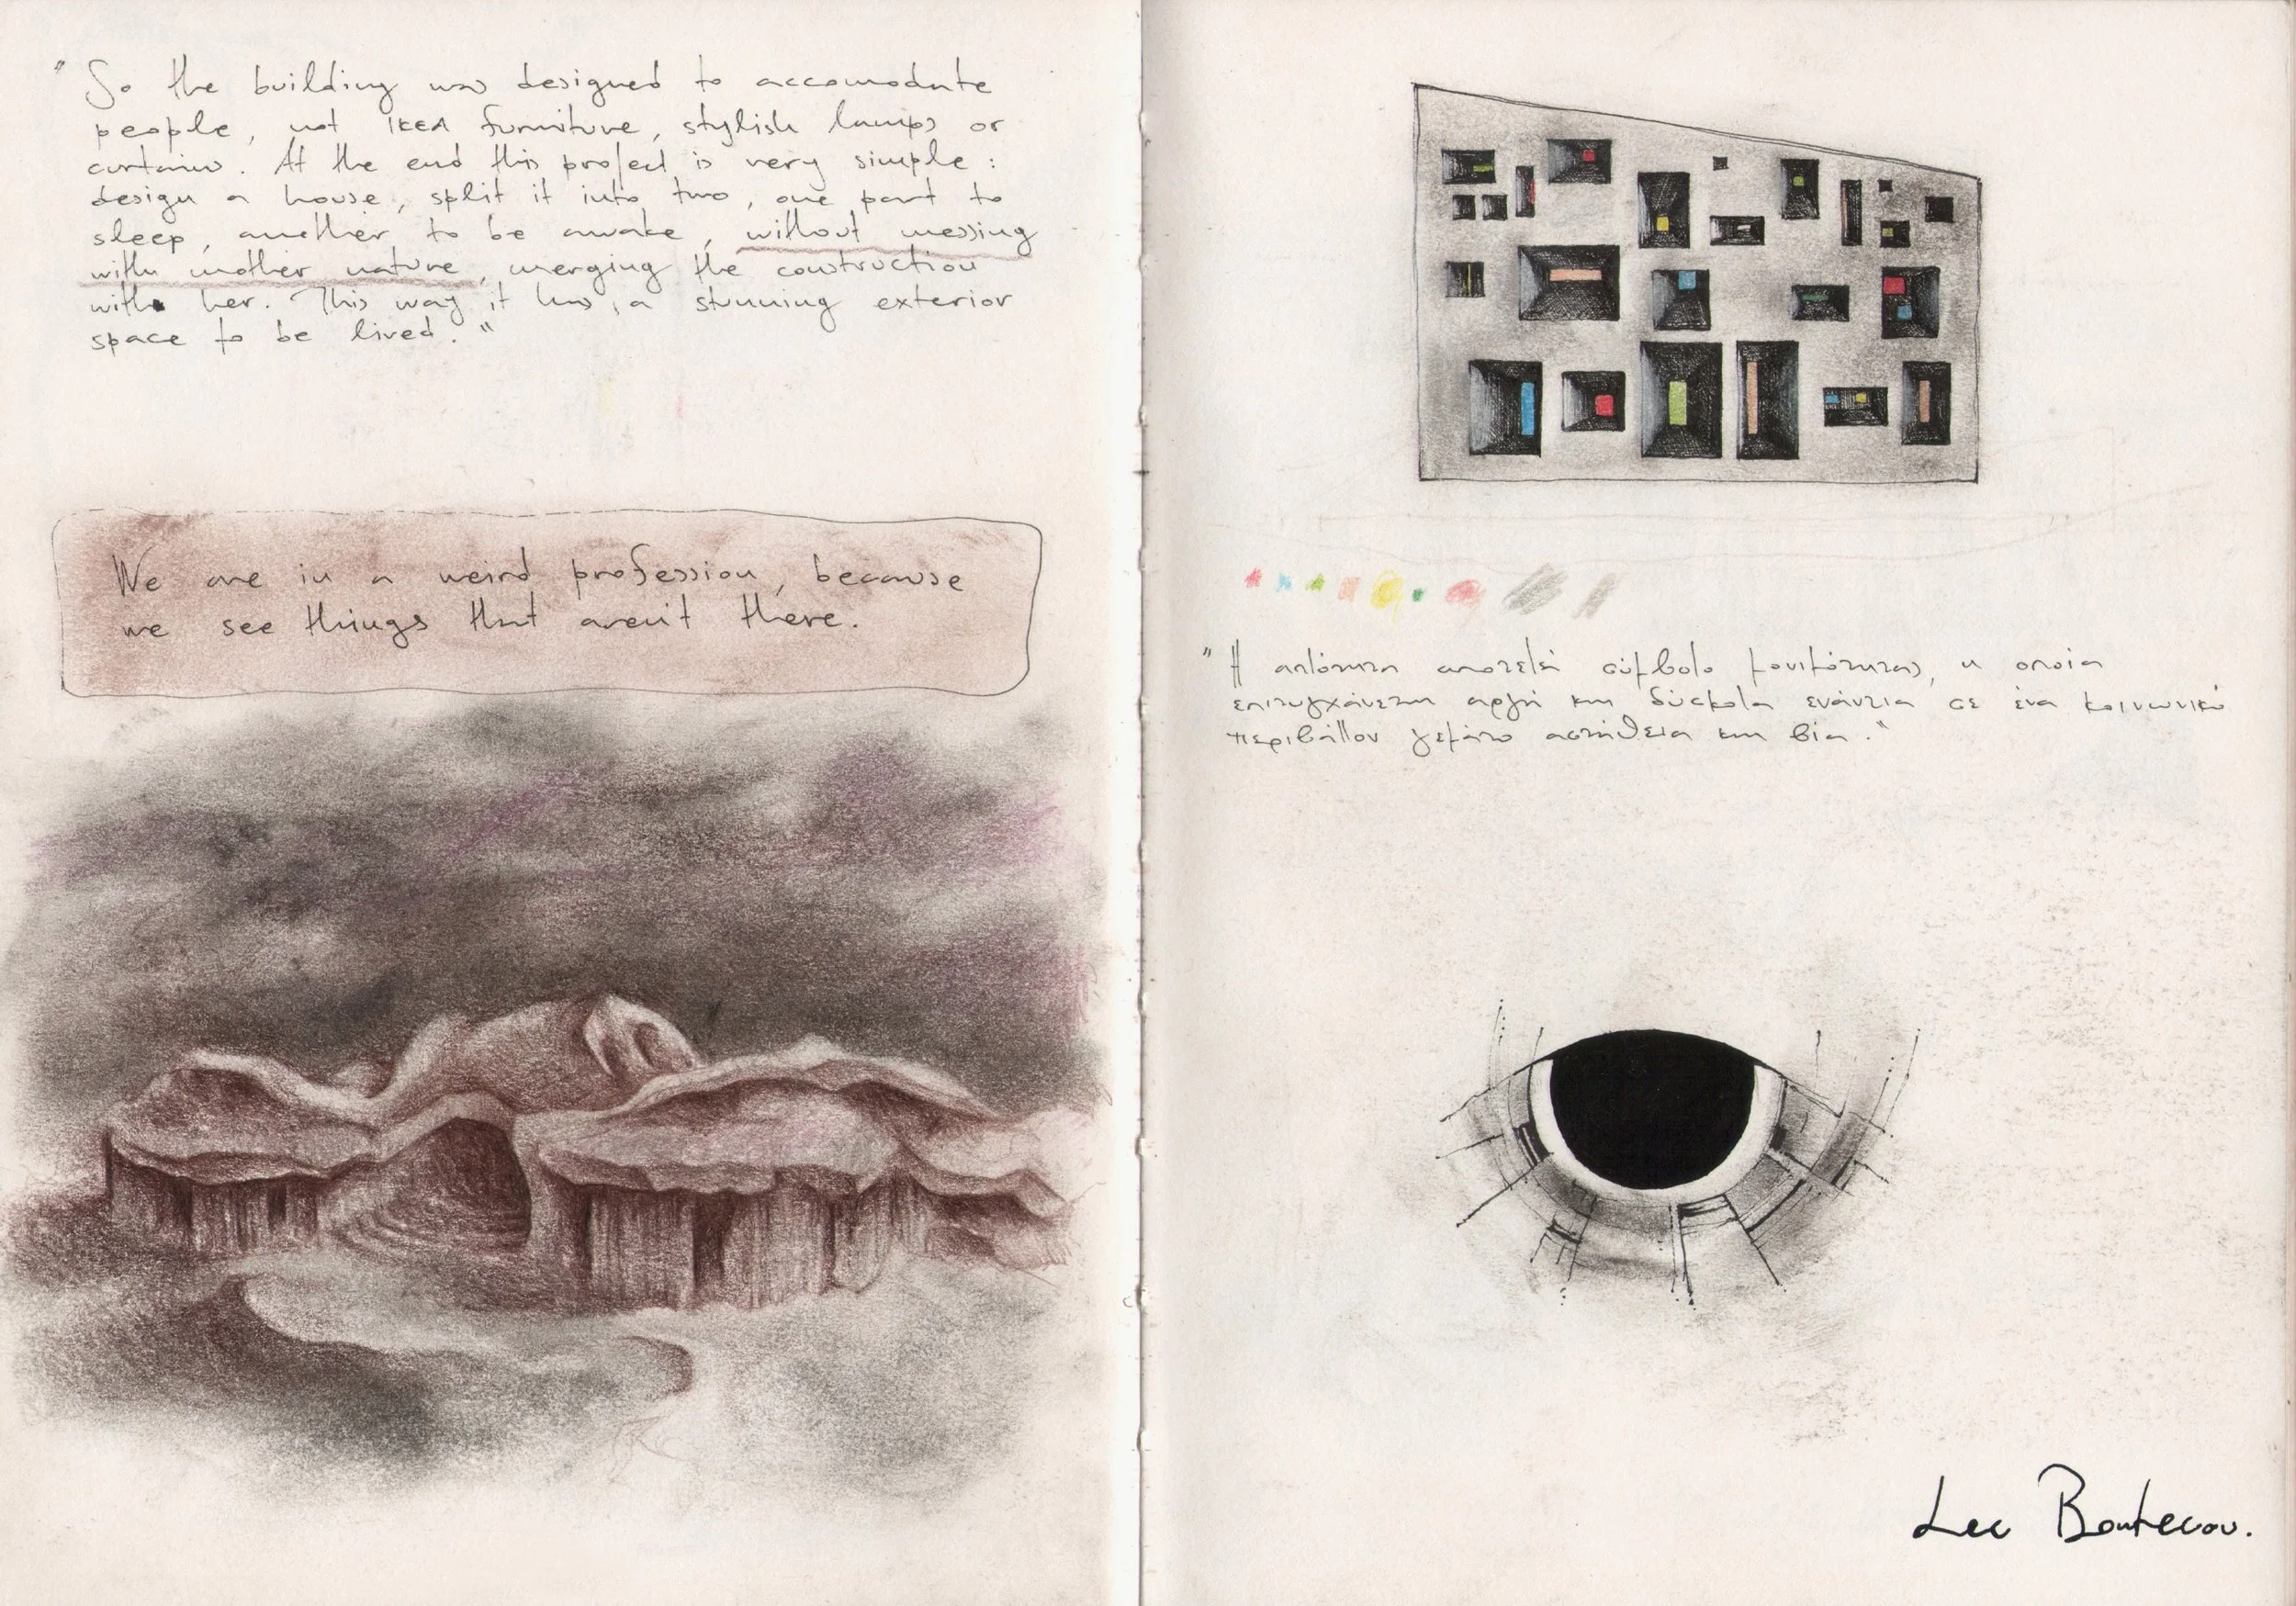 "So the building was designed to accomodate
people, not IKEA furniture, stylish lamps or
curtains. At the end this project is very simple:
design a house, split it into two, one part to
sleep, another to be awake, without messing
with mother nature, merging the construction
with her. This way it has a stunning exterior
space to be lived."
We are in a weird profession, because
we see things that aren't there.
"Η απλότητα αποτελεί σύμβολο μονιμότητας, η οποία
επιτυγχάνεται αργά και δύσκολα ενάντια σε ένα κοινωνικό
περιβάλλον γεμάτο αστάθεια και βία."
Lee Bontecou.